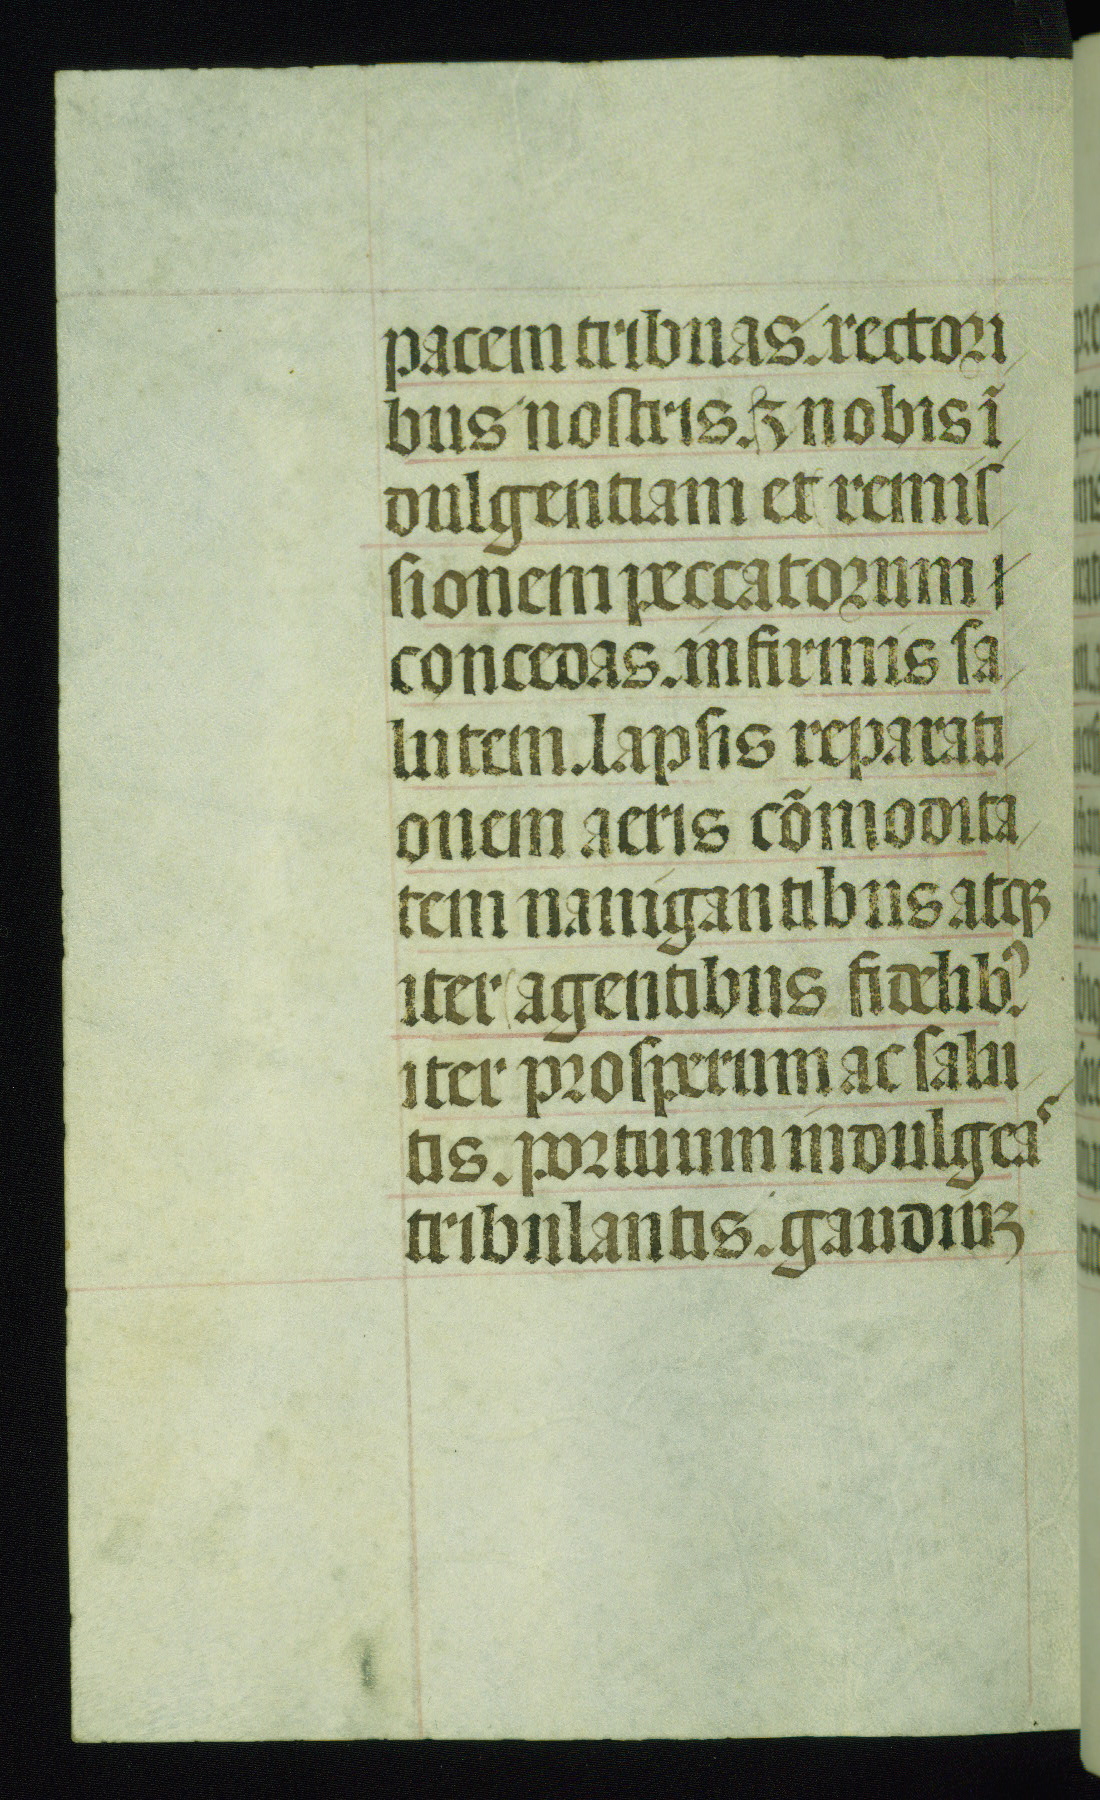 pacem tribuas. rectori
bus nostris. ⁊ nobis ĩ
dulgentiam et remis
sionem peccatorum
concedas. infirmis sa
lutem. lapsis reparati
onem aeris cõmodita
tem nauigantibus atqꝫ
iter agentibus fidelibꝰ.
iter prosperum ac salu
tis. portuum indulgeaˢ
tribulantis. gaudiuꝫ